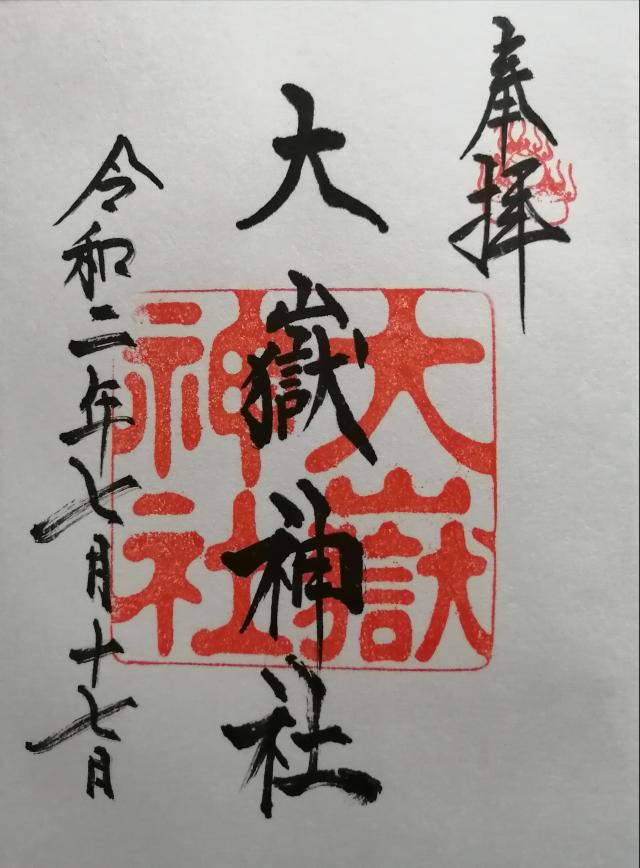 奉拝
大嶽神社
令和二年七月十七日
大嶽
神社